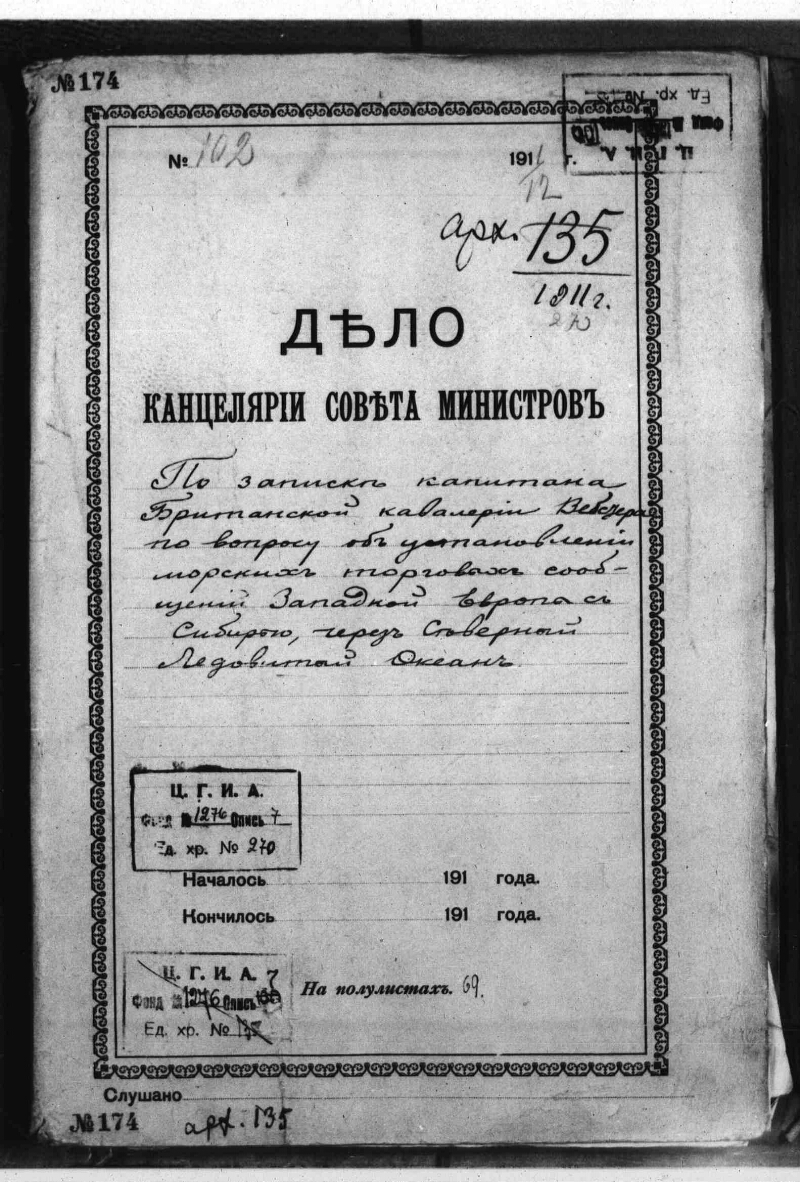 № 174
Ед. хр. №
Ц. Г. И. А.
№ 102
1911 г.
12
арх. 135
1911 г.
270
ДѢЛО
КАНЦЕЛЯРІИ СОВѢТА МИНИСТРОВЪ
По запискѣ капитана
Британской кавалеріи Вебстера
по вопросу объ установленіи
морскихъ торговыхъ сооб-
щеній Западной Европы съ
Сибирью, черезъ Сѣверный
Ледовитый Океанъ
Ц. Г. И. А.
Фонд № 1276 Опись 7
Ед. хр. № 270
Началось 191 года.
Кончилось 191 года.
Ц. Г. И. А. 7
Фонд № 1276 Опись
Ед. хр. №
На полулистахъ. 69.
Слушано
№ 174
арх. 135